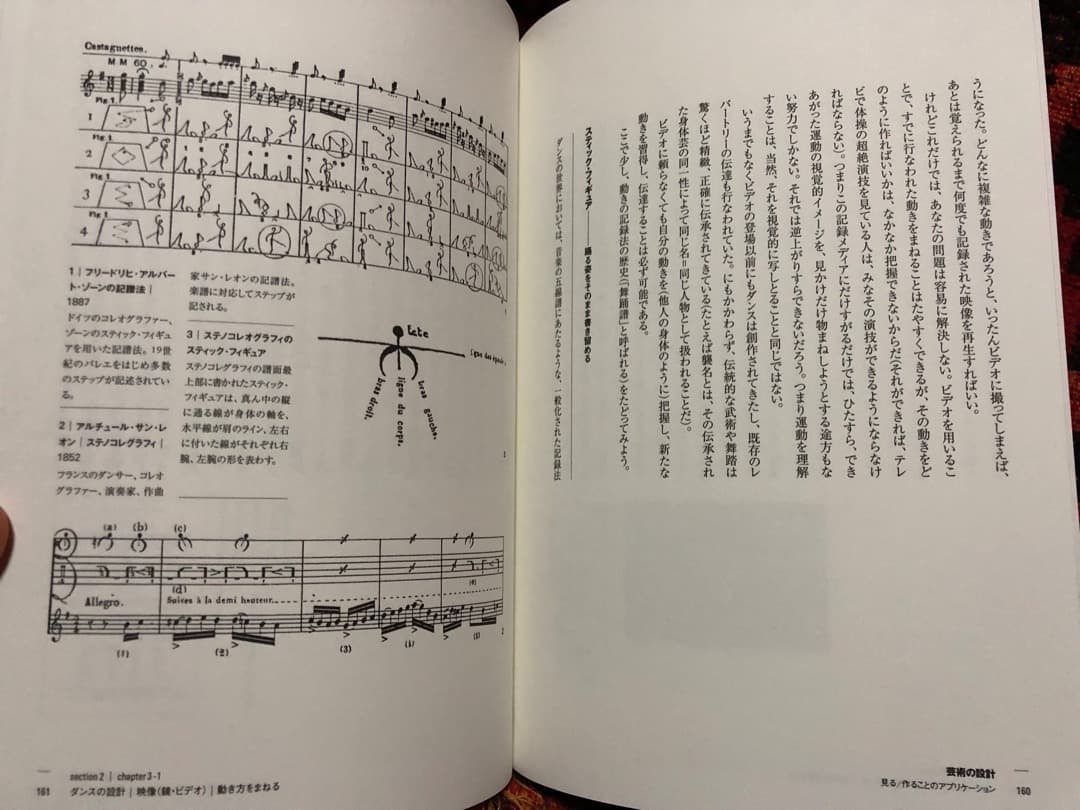 うになった。どんなに複雑な動きであろうと、いったんビデオに撮ってしまえば、
あとは覚えられるまで何度でも記録された映像を再生すればいい。
けれどこれだけでは、あなたの問題は容易に解決しない。ビデオを用いるこ
とで、すでに行なわれた動きをまねることはたやすくできるが、その動きをど
のように作ればいいかは、なかなか把握できないからだ(それができれば、テレ
ビで体操の超絶演技を見ている人は、みなその演技ができるようにならなけ
ればならない)。つまりこの記録メディアにだけすがるだけでは、ひたすら、でき
あがった運動の視覚的イメージを、見かけだけ物まねしようとする途方もな
い努力でしかない。それでは逆上がりすらできないだろう。つまり運動を理解
することは、当然、それを視覚的に写しとることと同じではない。
いうまでもなくビデオの登場以前にもダンスは創作されてきたし、既存のレ
パートリーの伝達も行なわれていた。にもかかわらず、伝統的な武術や舞踏は
驚くほど精緻、正確に伝承されてきている(たとえば襲名とは、その伝承され
た身体芸の同一性によって同じ名=同じ人物として扱われることだ)。
ビデオに頼らなくても自分の動きを(他人の身体のように)把握し、新たな
動きを習得し、伝達することは必ず可能である。
ここで少し、動きの記録法の歴史(「舞踊譜」と呼ばれる)をたどってみよう。
スティック・フィギュア——踊る姿をそのまま書き留める
ダンスの世界においては、音楽の五線譜にあたるような、一般化された記録法
芸術の設計
見る/作ることのアプリケーション
160
Castagnettes.
M M 60.
Fig. 1
1
Fig. 1
2
3
4
1｜フリードリヒ・アルバー
ト・ゾーンの記譜法｜
1887
ドイツのコレオグラファー、
ゾーンのスティック・フィギュ
アを用いた記譜法。19世
紀のバレエをはじめ多数
のステップが記述されてい
る。
2｜アルチュール・サン・レ
オン｜ステノコレグラフィ｜
1852
フランスのダンサー、コレオ
グラファー、演奏家、作曲
家サン・レオンの記譜法。
楽譜に対応してステップが
記される。
3｜ステノコレオグラフィの
スティック・フィギュア
ステノコレグラフィの譜面最
上部に書かれたスティック・
フィギュアは、真ん中の縦
に通る線が身体の軸を、
水平線が肩のライン、左右
に付いた線がそれぞれ右
腕、左腕の形を表わす。
tête
bras droit.
ligne du corps.
bras gauche.
3
(a)
(b)
(c)
(d)
(e)
Allegro.
Suives à la demi hauteur.
(1)
(2)
(3)
2
section 2｜chapter 3-1
161
ダンスの設計｜映像(鏡・ビデオ)｜動き方をまねる